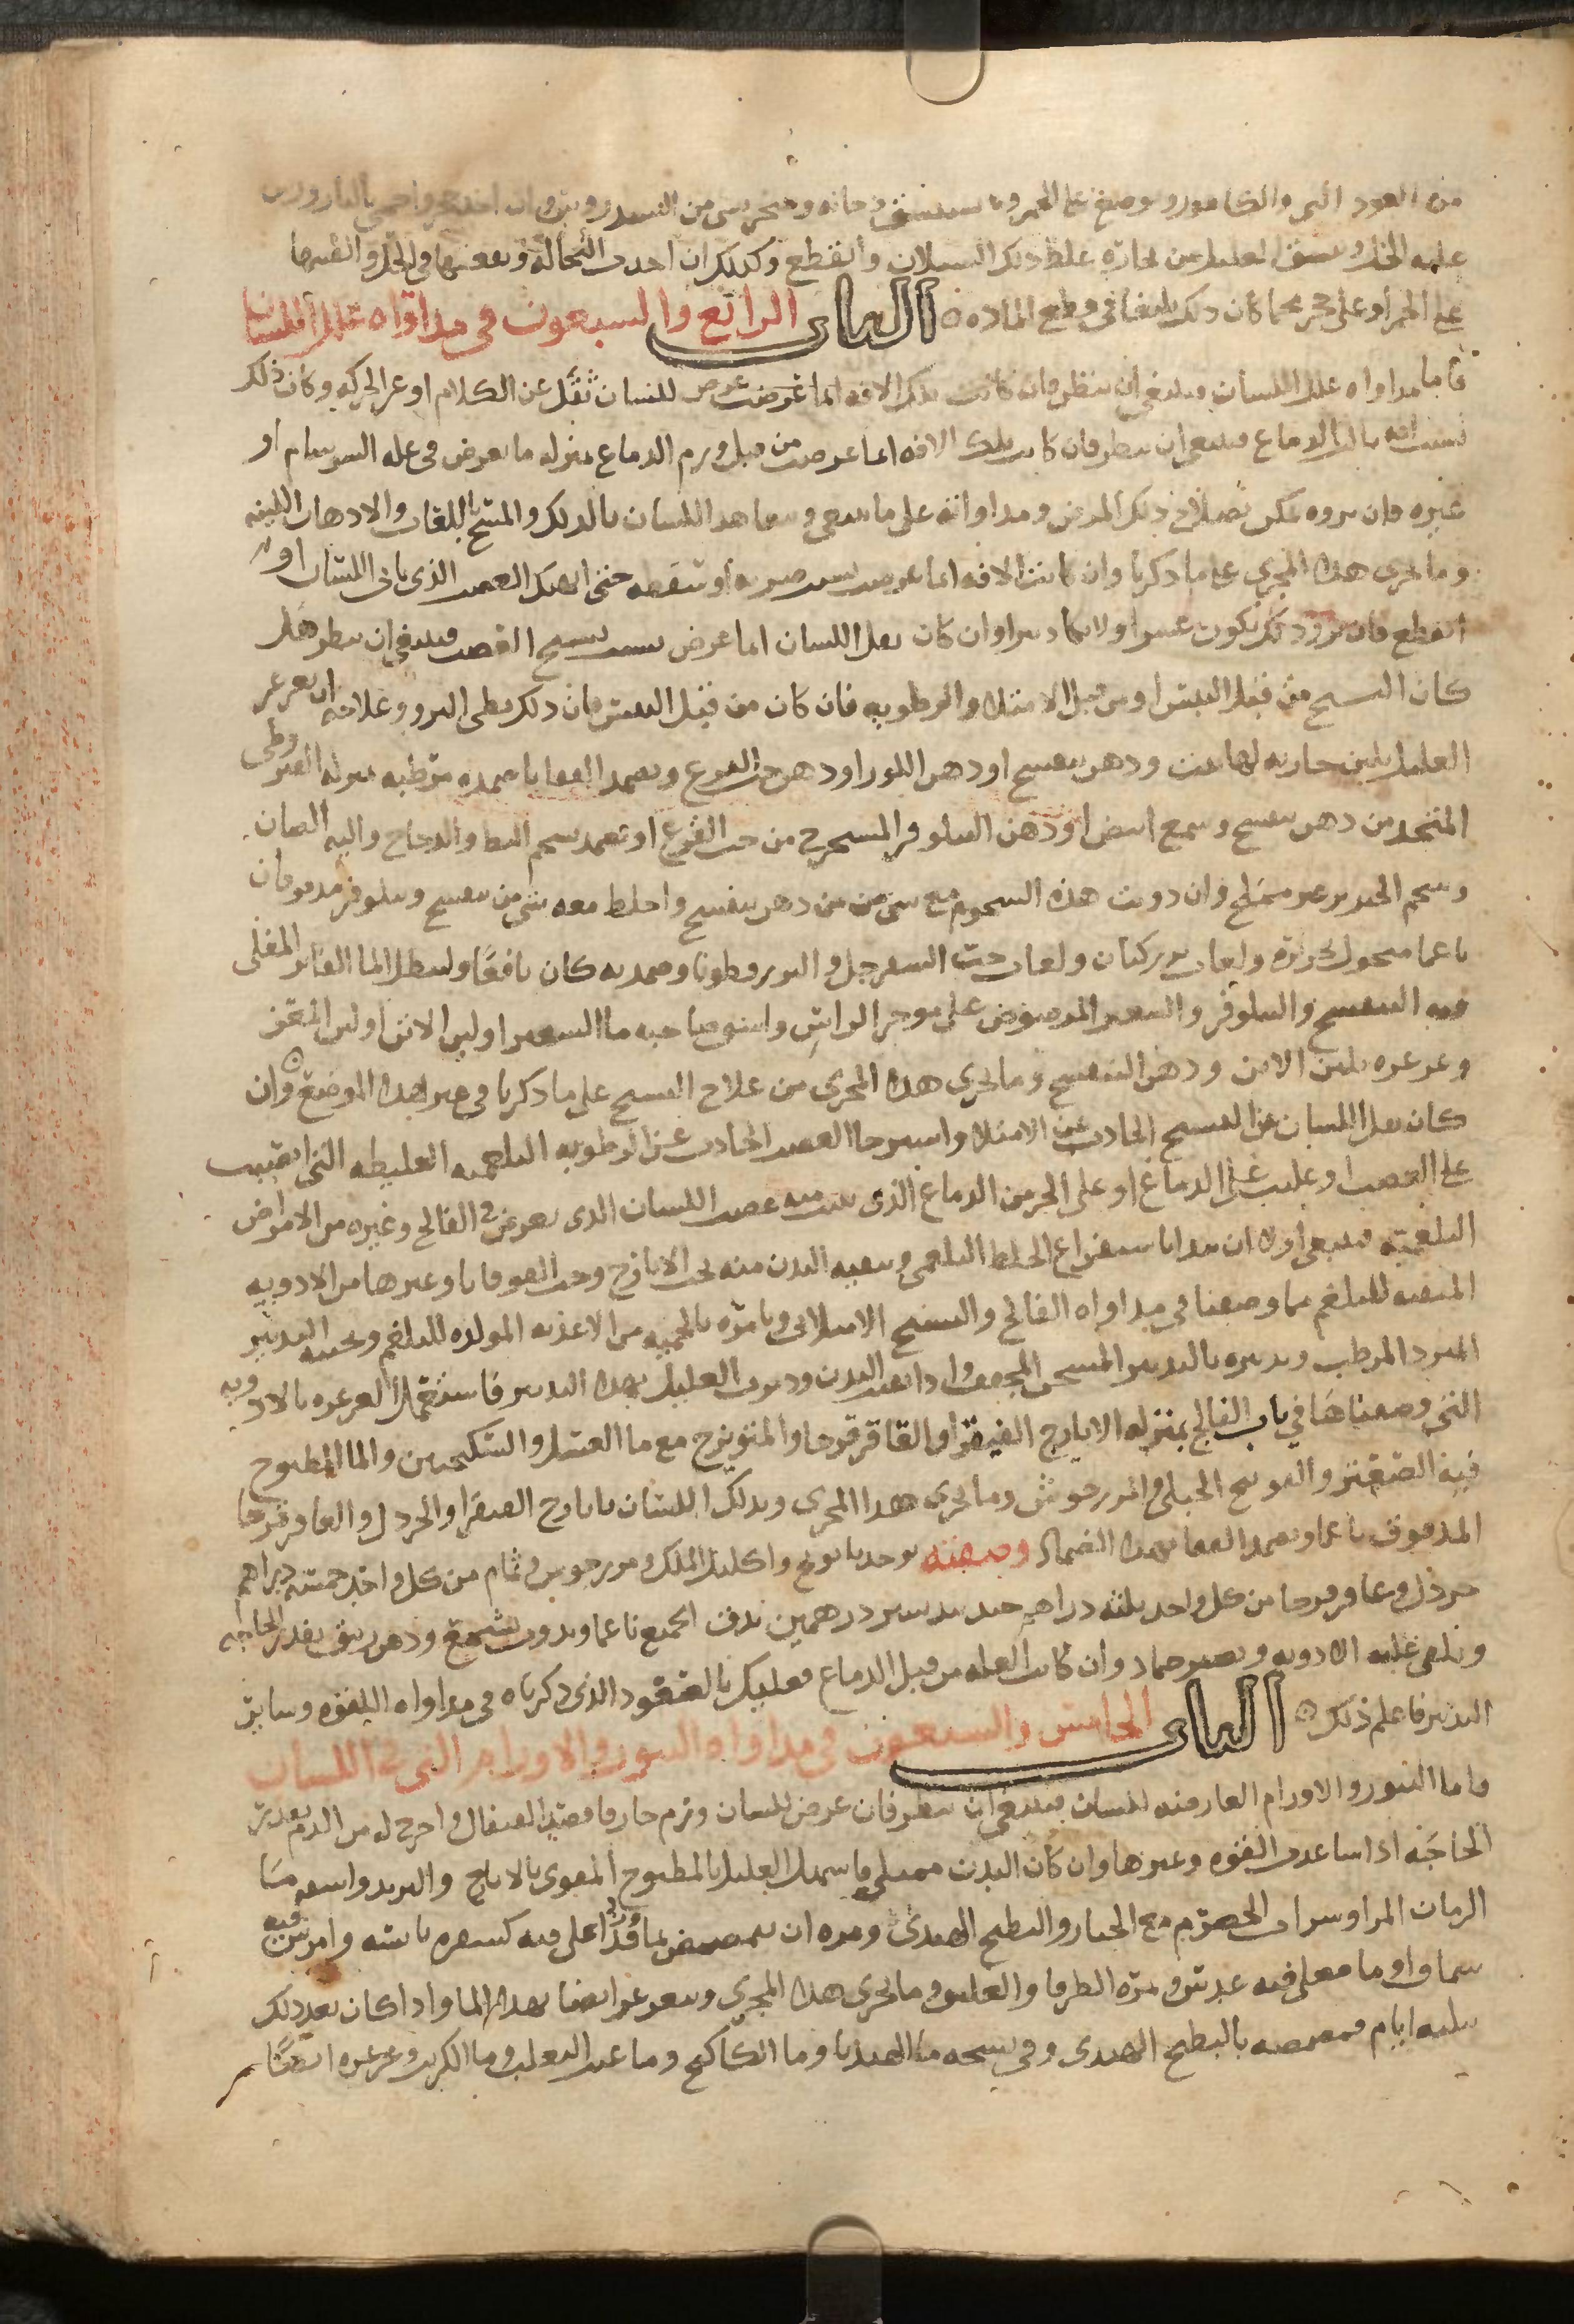 من العود الني والكافور ويوضع على الجمر ويستنشق دخانه ويتخر بشي من السندروس وان اخذ واحمي بالنار ورش
عليه الخل وينشق العليل من بخاره غلظ ذلك السيلان وانقطع وكذلك ان اخذت النخالة ونقعتها في الخل والقيتها
على الجمر او على حجر محما كان ذلك بليغا في قطع الماده ۞ الباب الرابع والسبعون في مداواه علل اللسان
فاما مداواه علل اللسان فينبغي ان ينظر فان كانت تلك الافه انما عرضت عرض للسان ثقل عن الكلام او عن الحركه وكان ذلك
بسبب افه نالت الدماغ فينبغي ان ينظر فان كانت تلك الافه انما عرضت من قبل ورم الدماغ بمنزله ما يعرض في عله السرسام او
غيره فان بروه يمكن بصلاح ذلك المرض ومداواته على ما ينبغي وتعاهد اللسان بالدلك والمسح باللعاب والادهان اللينه
وما يجري هذا المجري على ما ذكرنا وان كانت الافه انما عرضت بسبب ضربه او سقطه حتى انهتك العصب الذي ياتي اللسان او
انقطع فان برو ذلك يكون عسرا ولا يكاد يبرا وان كان ثقل اللسان انما عرض بسبب تشنج العصب فينبغي ان ينظر هل
كان التشنج من قبل اليبس او من قبل الامتلا والرطوبه فان كان من قبل اليبس فان ذلك بطي البرو وعلاجه ان يغرغر
العليل بلبن حار به لهاعت ودهن بنفسج او دهن اللوز او دهن حب القرع ويضمد القفا باضمده مرطبه بمنزله القيروطي
المتخذ من دهن بنفسج وشمع ابيض او دهن النيلوفر المستخرج من حب القرع او تضمد بشحم البط والدجاج واليه الضان
وشحم الخنزير غير مملح وان ذوبت هذه الشحوم مع شي من دهن بنفسج واخلط معه شي من بنفسج ونيلوفر مدقوقان
ناعما منخول بحريره ولعاب بزر كتان ولعاب حب السفرجل والبزر قطونا وضمد به كان نافعا ولينطل الما الفاتر المغلي
فيه البنفسج والنيلوفر والشعير المرضوض على موخر الراس واسق صاحبه ما الشعير او لبن الاتن او لبن المعز
وغرغره بلبن الاتن ودهن البنفسج وما يجري هذا المجري من علاج التشنج على ما ذكرنا في غير هذا الموضع ۞ وان
كان ثقل اللسان عن التشنج الحادث عن الامتلا واسترخا العصب الحادث عن الرطوبه البلغميه الغليظه التي انصبت
على العصب او غلبت على الدماغ او على الجز من الدماغ الذي ينبت منه عصب اللسان الذي يعرض في الفالج وغيره من الامراض
البلغميه فينبغي اولا ان يبدا باستفراغ الخلط البلغمي وتنقيه البدن منه بحب الايارج وحب القوقايا وغيرها من الادويه
المنقيه للبلغم مما وصفنا في مداواه الفالج والتشنج الامتلائي وتامره بالحميه من الاغذيه المولده للبلغم وتجنبه التدبير
المبرد المرطب وتدبيره بالتدبير المسخن المجفف واذا نقيت البدن ودبرت العليل بهذا التدبير فاستعمل الغرغره بالادويه
التي وصفناها في باب الفالج بمنزله الايارج الفيقرا والقاقرقرحا والميويزج مع ما العسل والسكنجبين والما المطبوخ
فيه الصعتر والفوتنج الجبلي والمرزجوش وما يجري هذا المجري ويدلك اللسان بايارج الفيقرا والخردل والعاقرقرحا
المدقوق ناعما ويضمد القفا بهذا الضماد وصفته يوخذ بابونج واكليل الملك ومرزجوش ونمام من كل واحد خمسه دراهم
خردل وعاقرقرحا من كل واحد ثلثه دراهم جندبيدستر درهمين يدق الجميع ناعما ويذوب شمع ودهن زنبق بقدر الحاجه
ويلقى عليه الادويه ويصير ضماد وان كانت العله من قبل الدماغ فعليك بالسعوط الذي ذكرناه في مداواه اللقوه وسائر
التدبير فاعلم ذلك ۞ الباب الخامس والسبعون في مداواه البثور والاورام التي في اللسان
واما البثور والاورام العارضه للسان فينبغي ان ينظر فان عرض للسان ورم حار فافصد القيفال واخرج له من الدم بقدر
الحاجه اذا ساعدت القوه وغيرها وان كان البدن ممتلي فاسهل العليل بالمطبوخ المقوى بالايارج والتربد واسقه ما
الرمان المر او شراب الحصرم مع الخيار والبطيخ الهندي ومره ان يتمضمض بما ورد قد اغلي فيه كسفره يابسه وامرس فيه
سماق او ما مغلي فيه عدس وثمره الطرفا والعليق وما يجري هذا المجري ويتغرغر ايضا بهذا الما واذا كان بعد ذلك
بثلثه ايام فمضمضه بالبطيخ الهندي وفي نسخه ما الهندبا وما الكاكنج وما عنب الثعلب وما الكزبره وغرغره ايضا